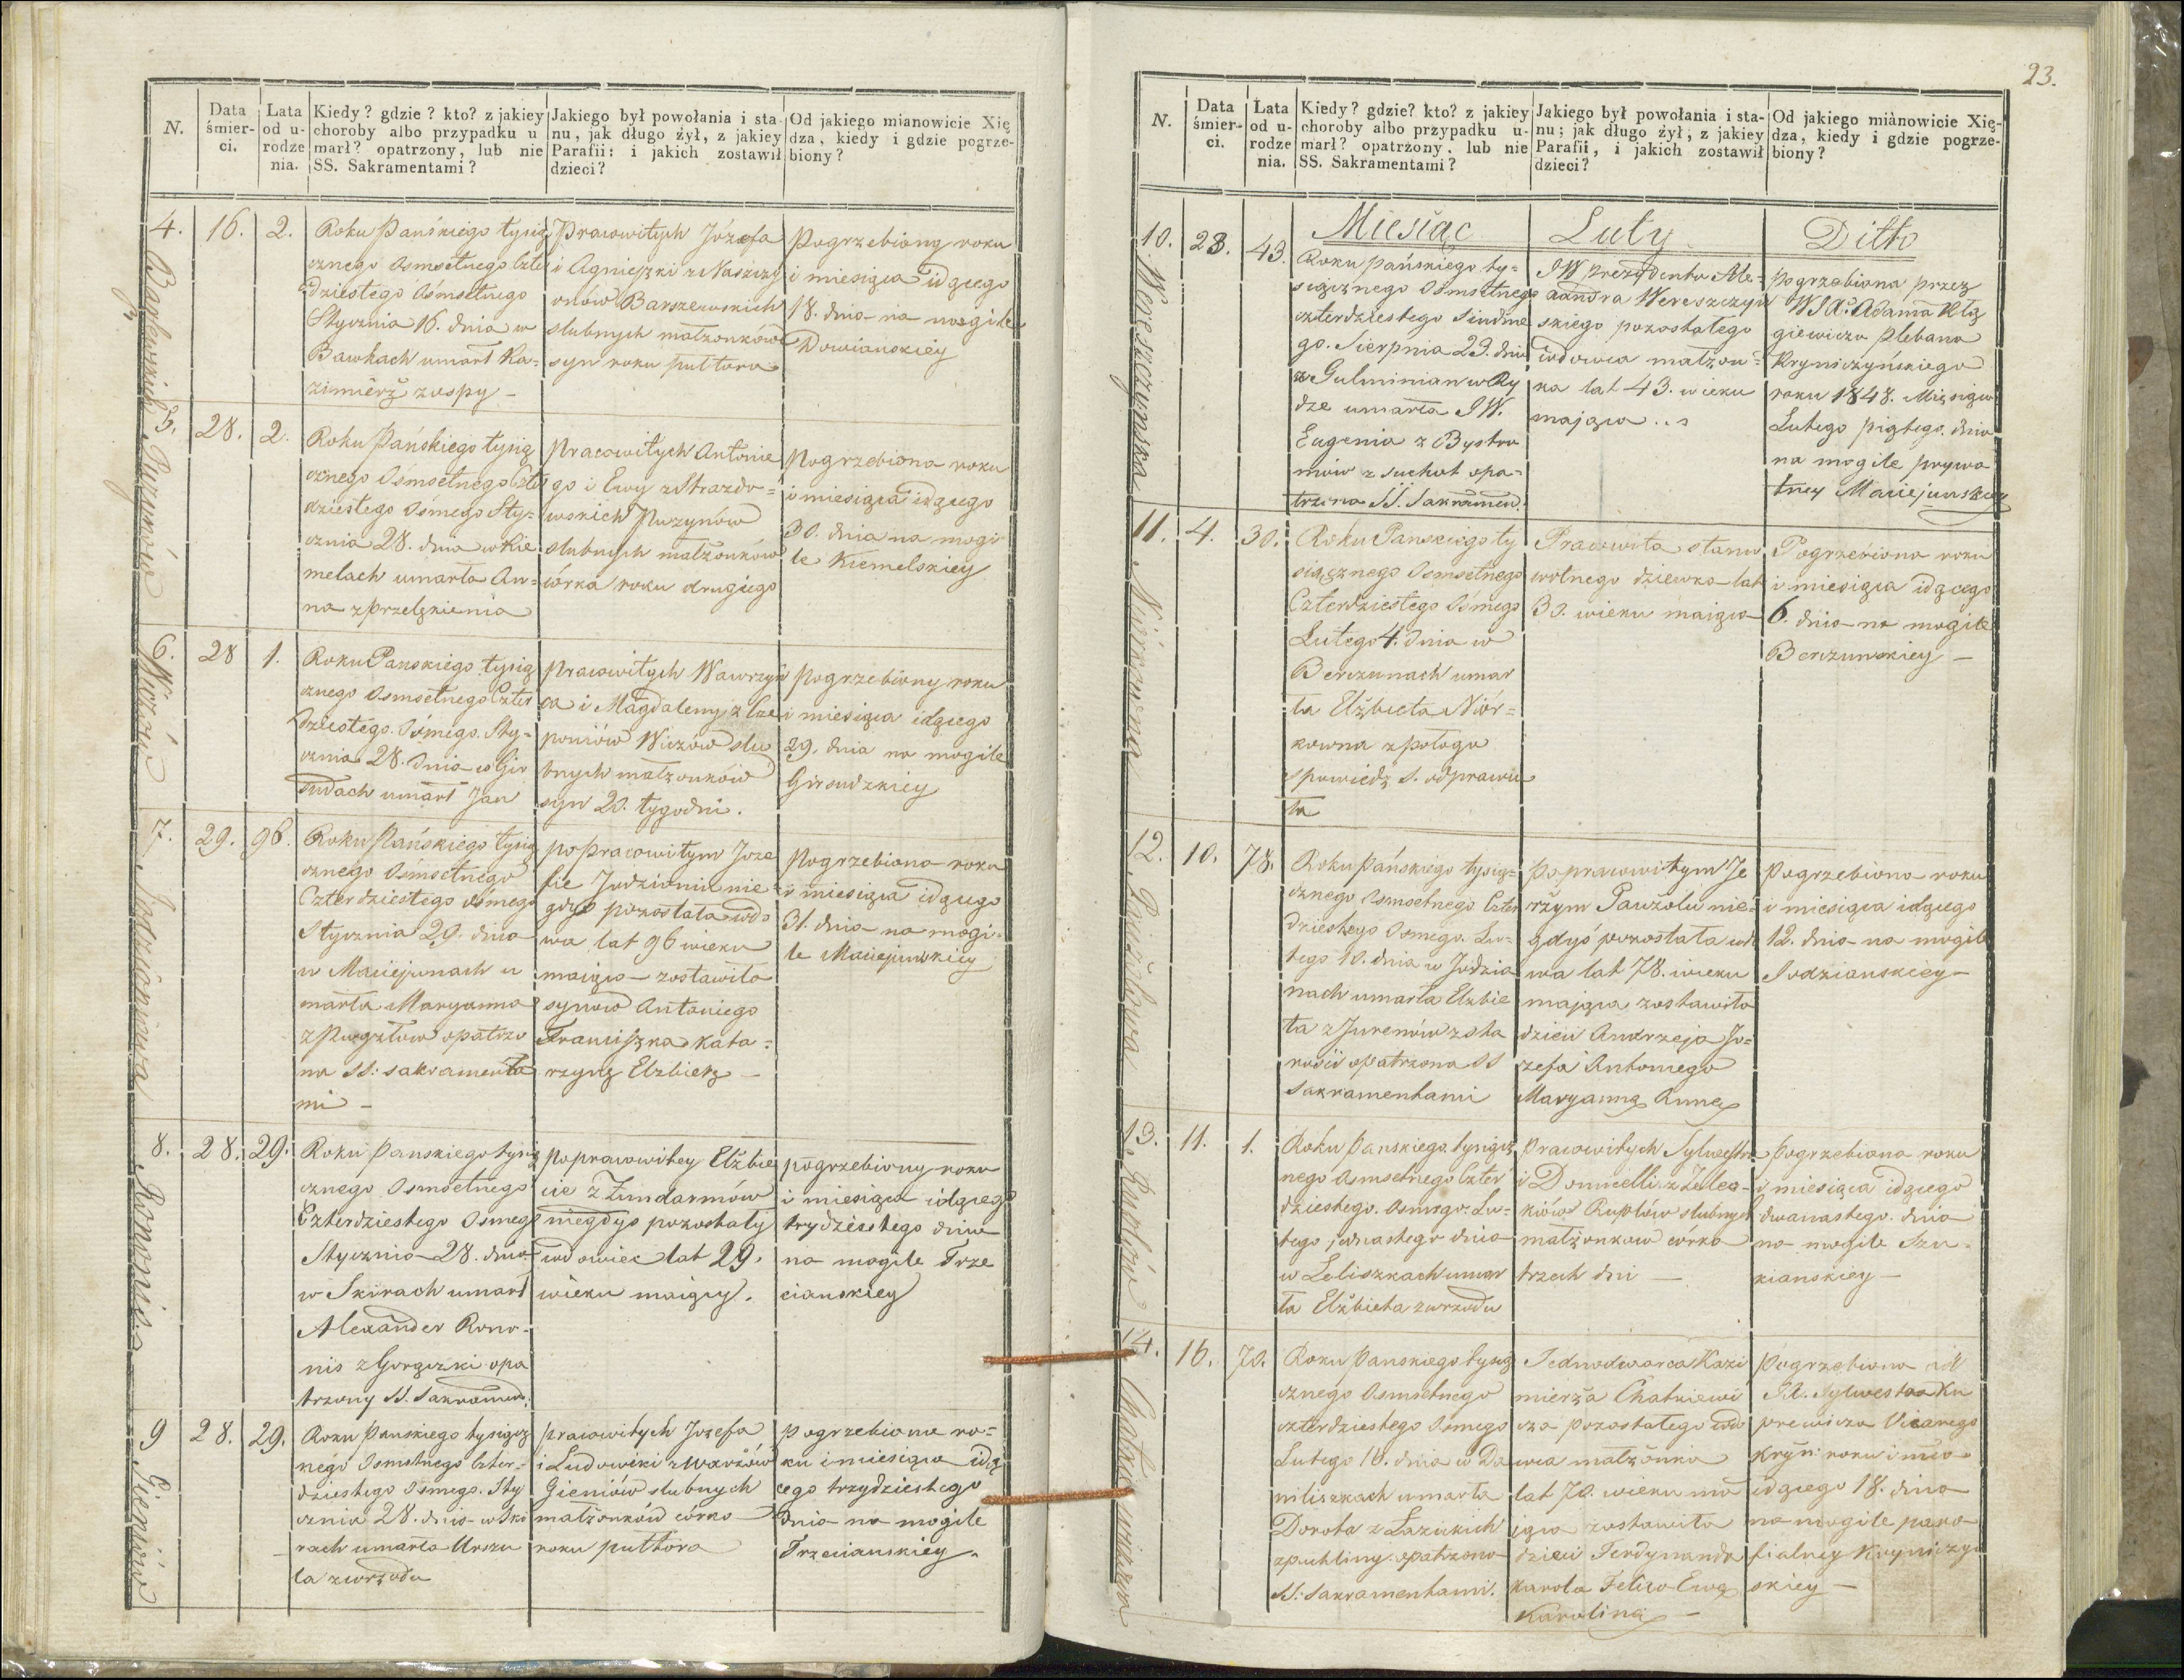 N.
Data śmier-ci.
Lata od u-rodze nia.
Kiedy? gdzie? kto? z jakiey
choroby albo przypadku u
marł? opatrzony, lub nie
SS. Sakramentami?
Jakiego był powołania i sta-
nu, jak długo żył, z jakiey
Parafii: i jakich zostawił
dzieci?
Od jakiego mianowicie Xię
dza, kiedy i gdzie pogrze-
biony?
4.
16.
2.
Roku Pańskiego tysią
cznego Osmsetnego Czte
dziestego Ośmsetnego
Stycznia 16. dnia w
Bawkach umarł Ka-
zimierz zospy -
Pracowitych Józefa
i Agnieszki z
Barszewskich
slubnych małżonków
syn roku pułtora
Pogrzebiony roku
i miesiąca idącego
18. dnia na mogile
Dowianskiéy
5. Puzynówna
28.
2.
Roku Pańskiego tysią
cznego Osmsetnego Czte
dziestego Ósmego Sty-
cznia 28. dnia w Kie
melach umarła An-
na z przelęknienia
Pracowitych Antonie
go i Ewy z Strazdo-
wskich Puzynów
slubnych małżonków
córka roku drugiego
Pogrzebiona roku
i miesiąca idącego
30. dnia na mogi
le Kiemelskiey
6.
28
1.
Roku Panskiego tysią
cznego Osmsetnego Czter
dziestego Ósmego Sty-
cznia 28. dnia w Gir
sudach umarł Jan
Pracowitych Wawrzyń
ca i Magdaleny z Cze
poniów slu
bnych małżonków
syn 20. tygodni.
pogrzebiony roku
i miesiąca idącego
29. dnia na mogile
Girsudzkiey
7. Jodzianiowa
29.
96.
Roku Pańskiego tysią
cznego Osmsetnego
Czterdziestego ósmego
Stycznia 29. dnia
w Maciejunach u
marła Maryanna
z opatrzo
na SS: sakramenta
mi -
po pracowitym Joze
fie Jodzianie nie-
gdyś pozostała wdo
wa lat 96 wieku
maiąca zostawiła
synów Antoniego
Franciszka Kata-
rzynę Elżbietę -
Pogrzebiona roku
i miesiąca idącego
31. dnia na mogi-
le Maciejuńskiey
8. Romonis
28.
29.
Roku Panskiego tysią
cznego Osmsetnego
Czterdziestego Osmego
Stycznia 28. dnia
w Skirach umarł
Alexander Romo-
nis z Gorączki opa
trzony SS. Sakramen.
po pracowitey Elżbie
cie z Żundarmów
niegdyś pozostały
wdowiec lat 29.
wieku maiący.
pogrzebiony roku
i miesiąca idącego
trydziestego dnia
na mogile Trze
cianskiey
9 Gieniów
28.
29.
Roku Panskiego tysiącz
nego Osmsetnego Czter-
dziestego Osmego. Sty
cznia 28. dnia w Ski
rach umarła Urszu
la z wrzodu
pracowitych Jozefa
i Ludowiki z
Gieniów slubnych
małżonków córka
roku pułtora
pogrzebiona ro-
ku i miesiąca idą
cego trzydziestego
dnia na mogile
Trzecianskiey.
23.
N.
Data śmier-ci.
Lata od u-rodze nia.
Kiedy? gdzie? kto? z jakiey
choroby albo przypadku u-
marł? opatrzony, lub nie
SS. Sakramentami?
Jakiego był powołania i sta-
nu; jak długo żył, z jakiey
Parafii, i jakich zostawił
dzieci?
Od jakiego mianowicie Xię-
dza, kiedy i gdzie pogrze-
biony?
Miesiąc Luty Ditto
10. Wereszczyńska
23.
43.
Roku pańskiego ty-
sięcznego Osmsetnego
czterdziestego Siódme
go. Sierpnia 23. dnia
z Gulminian w Ry
dze umarła JW.
Eugenia z Bystra
mów z suchot opa-
trzona SS. Sakramen.
JW Prezydenta Ale-
xandra Wereszczyń
skiego pozostałego
wdowca małżon-
ka lat 43. wieku
mająca ..
Pogrzebiona przez
WJX. Adama
giewicza Plebana
Krynicyńskiego
roku 1848. Miesiąca
Lutego piątego. dnia
na mogile prywa
tney Maciejunskiey
11.
4.
30.
Roku Panskiego ty
siącznego Osmsetnego
Czterdziestego Osmego
Lutego 4. dnia w
Berzunach umar
ła Elżbieta Niór-
kowna z połogu
spowiedz S. odprawiw
ła
Pracowita stanu
wolnego dziewka lat
30. wieku maiąca
Pogrzebiona roku
i miesiąca idącego
6. dnia na mogile
Berzunskiey -
12. Paużolowa
10.
78.
Roku pańskiego tysią-
cznego Osmsetnego Czter
dziestego Osmego. Lu-
tego 10. dnia w Jodzia
nach umarła Elżbie
ta z Jurenów z sta
rości opatrzona SS
Sakramentami
Po pracowitym Je
rzym Paużolu nie-
gdyś pozostała wdo
wa lat 78. wieku
mająca zostawiła
dzieci Andrzeja Jo-
zefa Antoniego
Maryannę Annę
Pogrzebiona roku
i miesiąca idącego
12. dnia na mogile
Jodzianskiey -
13. Ruplów
11.
1.
Roku Panskiego tysiącz
nego Osmsetnego Czter
dziestego. Osmego. Lu-
tego jednastego dnia
w Leliszkach umar
ła Elżbieta z wrzodu
Pracowitych Sylwestra
i Domicelli z
Ruplów slubnych
małżonkow corka
trzech dni -
Pogrzebiona roku
i miesiąca idącego
dwanastego. dnia
na mogile Szu-
kianskiey -
14.
16.
70.
Roku Panskiego tysią
cznego Osmsetnego
czterdziestego Osmego
Lutego 16. dnia w Da
niliszkach umarła
Dorota z Łazickich
z puchliny opatrzona
SS. Sakramentami.
Jednodworca Kazi
mierza Chatkiewi
cza pozostałego wdo
wca małżonka
lat 70. wieku ma
iąca zostawiła
dzieci Ferdynanda
Karola Felixa Ewę
Karolinę -
Pogrzebiona od
JX. Sylwestra Ku
prewicza Vicarego
Kryn: roku i mie
idącego 18. dnia
na mogile para
fialney Krynicyń
skiey -